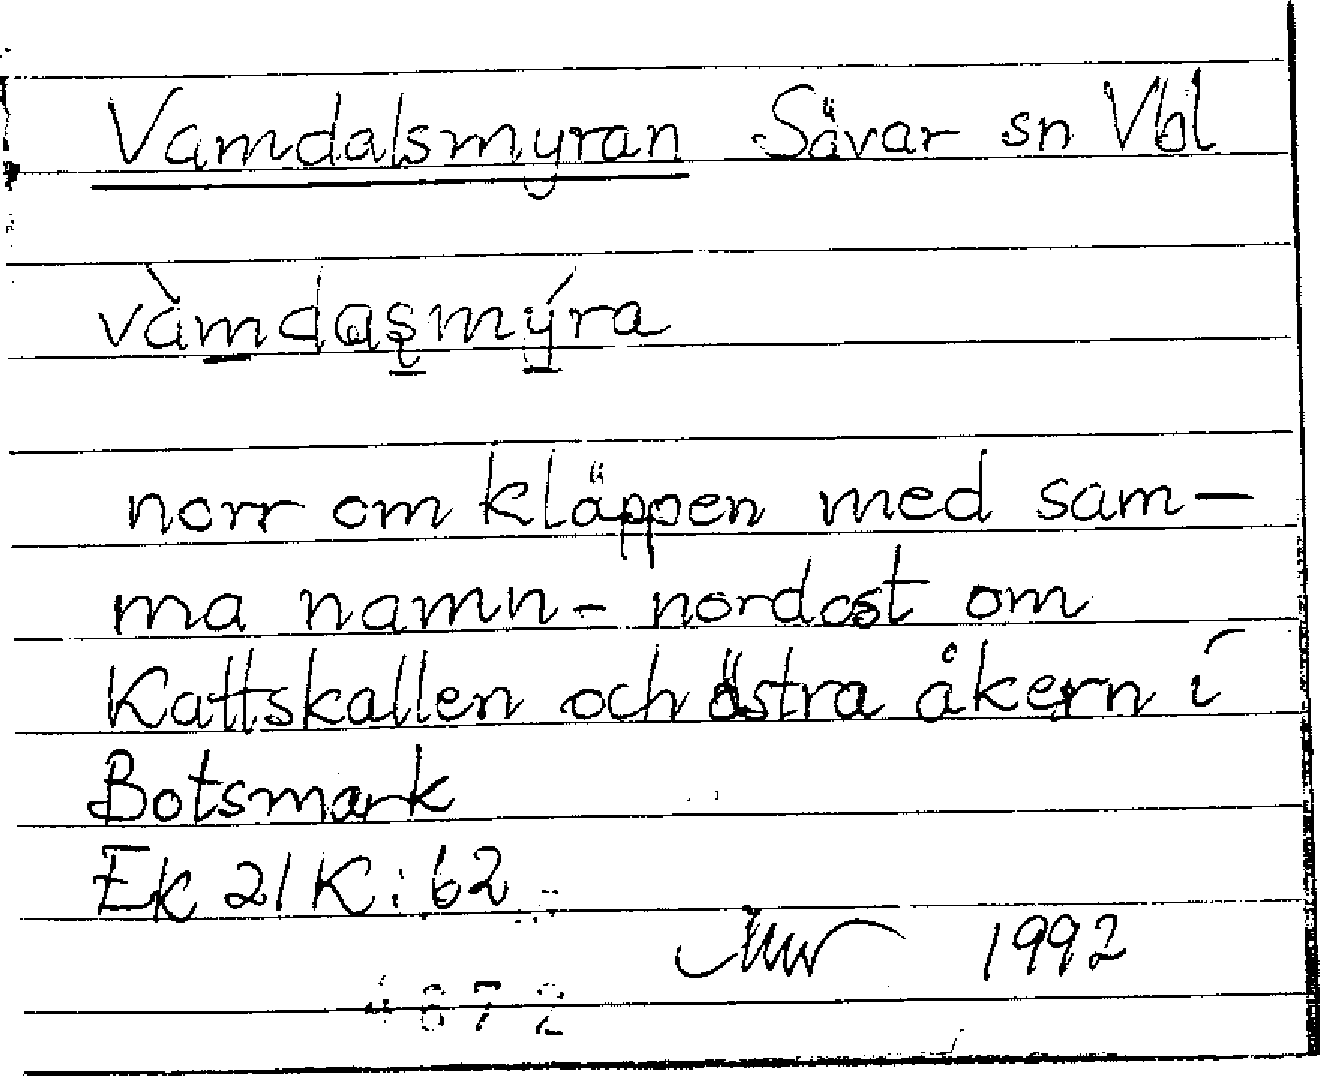 Vamdalsmyran Sävar sn Vbl
vàmdaşmýra
norr om kläppen med sam-
ma namn - nordost om
Kattskallen och östra åkern i
Botsmark
Ek 21K:62
1992
4672